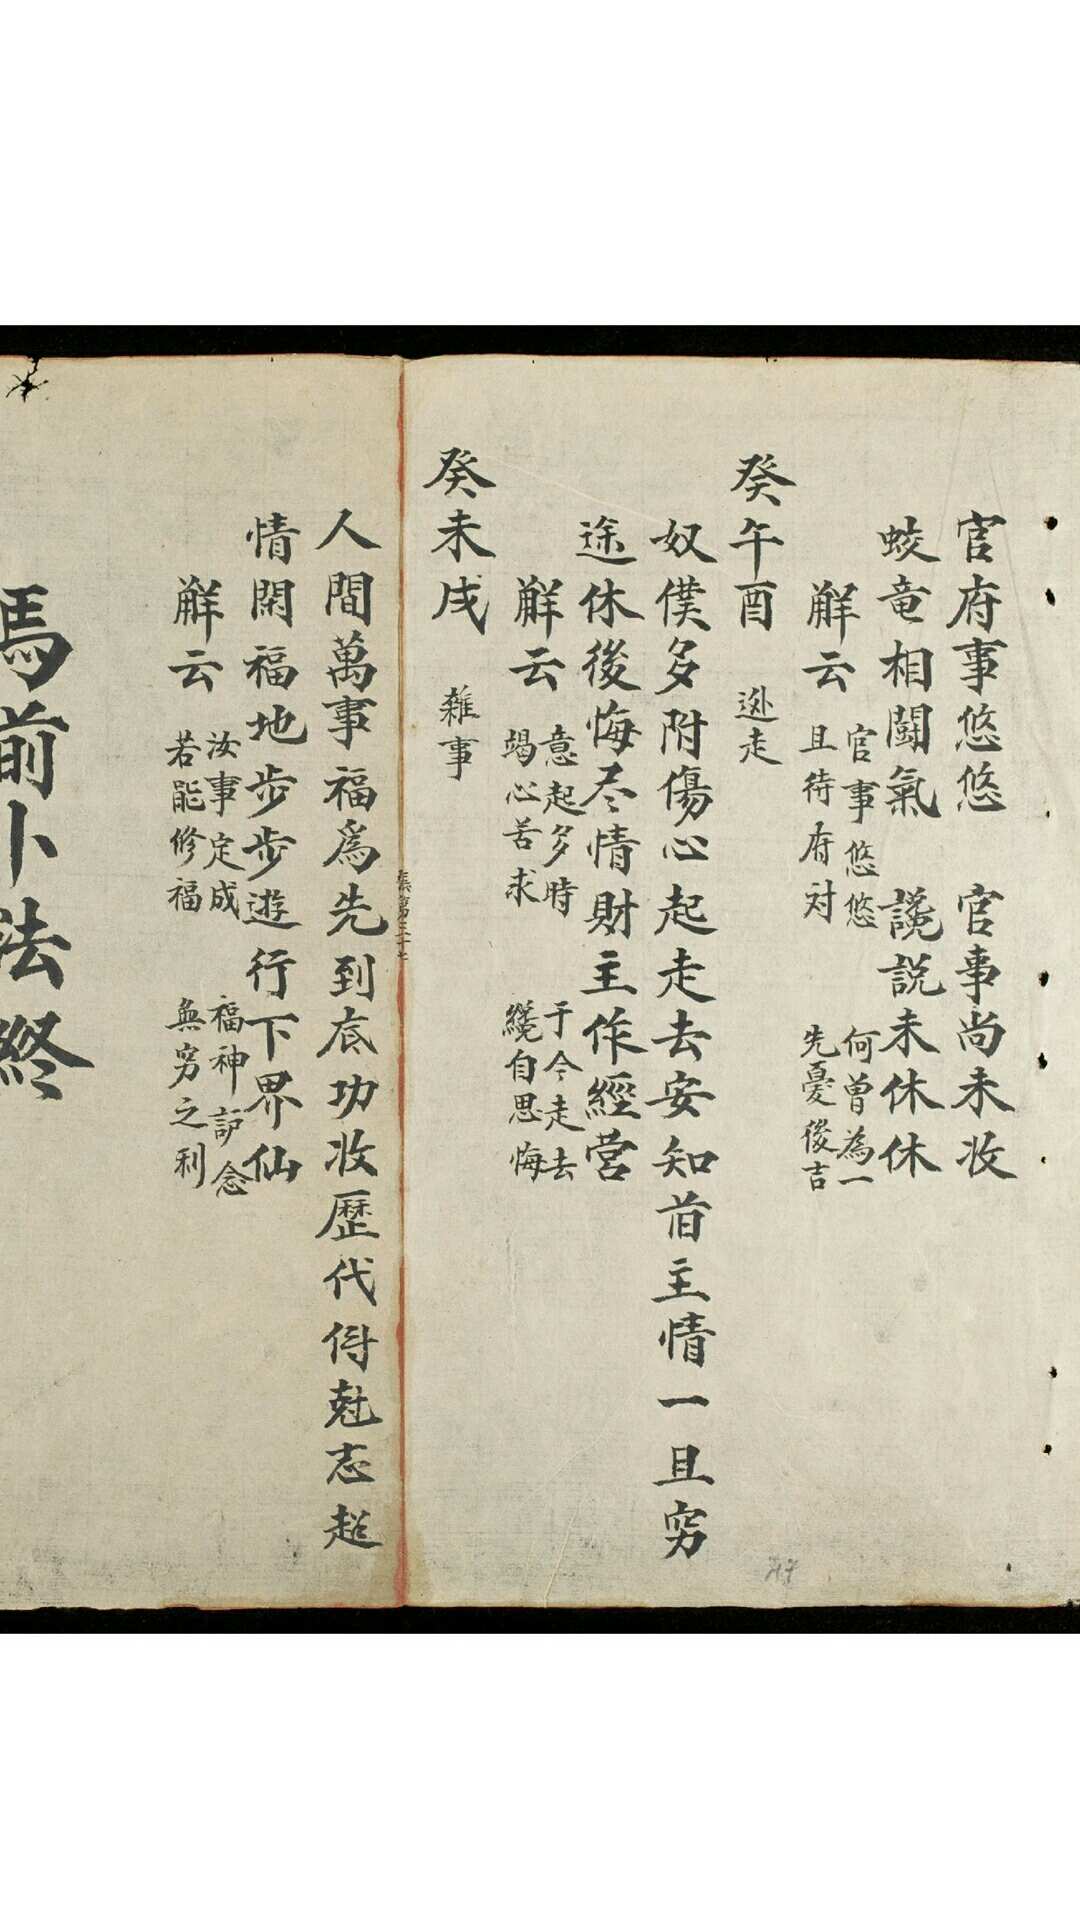 官府事悠悠　官事尚未收
蛟竜相鬪氣　讒説未休休
解云
官事悠悠　何曾為一
且待府対　先憂後吉
癸午酉　迯走
奴僕多附傷心起走去安知首主情一旦穷
途休後悔尽情財主作經营
解云
意起多時　于今走去
竭心苦求　纔自思悔
癸未戌　雜事
人間萬事福爲先到底功收歷代侍尅志超
情閑福地步步遊行下界仙
解云
汝事定成　福神护念
若能修福　無穷之利
馬前卜法終